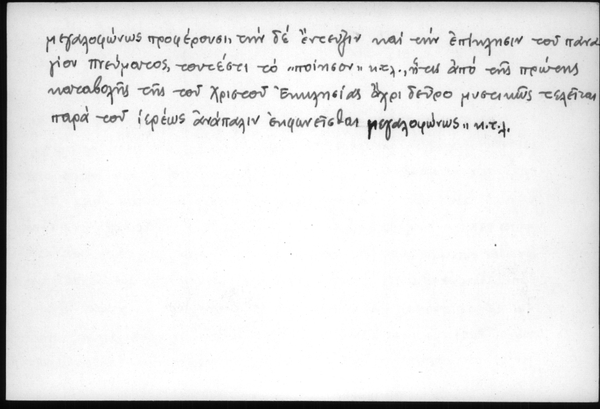 μεγαλοφώνως προφέρουσι, τὴν δέ ἔντευξιν καί τὴν ἐπίκλησιν τοῦ πανα
γίου πνεύματος, τουτέστι τὸ „ποίησον" κτλ., ἥτις ἀπό τῆς πρώτης
καταβολῆς τῆς τοῦ Χριστοῦ Ἐκκλησίας ἄχρι δεῦρο μυστικῶς τελεῖται
παρά τοῦ ἱερέως ἀνάπαλιν ἐκφωνεῖσθαι μεγαλοφώνως" κ.τ.λ.